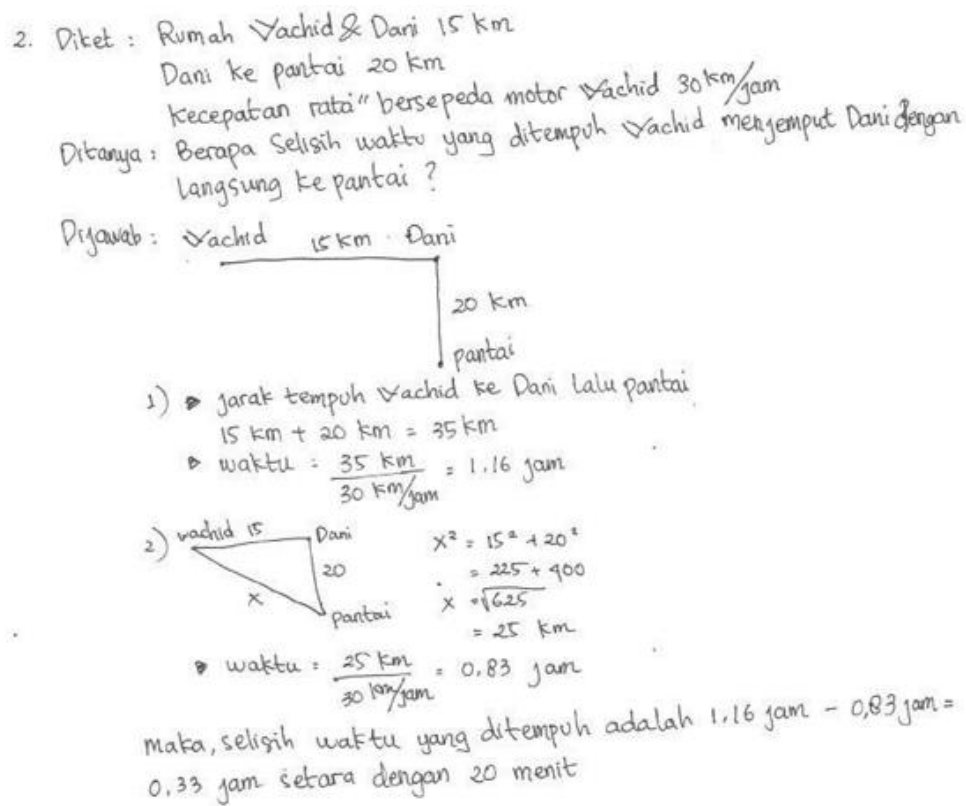 2. Diket : Rumah Vachid & Dani 15 km
Dani ke pantai 20 km
Kecepatan rata" bersepeda motor Vachid 30 km/jam
Ditanya : Berapa Selisih waktu yang ditempuh Vachid menjemput Dani dengan
Langsung ke pantai ?
Dijawab : Vachid 15 km Dani
20 km
pantai
1) jarak tempuh Vachid ke Dani Lalu pantai
15 km + 20 km = 35 km
waktu = 35 km / 30 km/jam = 1.16 jam
2) vachid 15 Dani
20
x
pantai
x² = 15² + 20²
= 225 + 400
x = √625
= 25 km
waktu = 25 km / 30 km/jam = 0.83 jam
maka, selisih waktu yang ditempuh adalah 1.16 jam - 0,83 jam =
0.33 jam setara dengan 20 menit